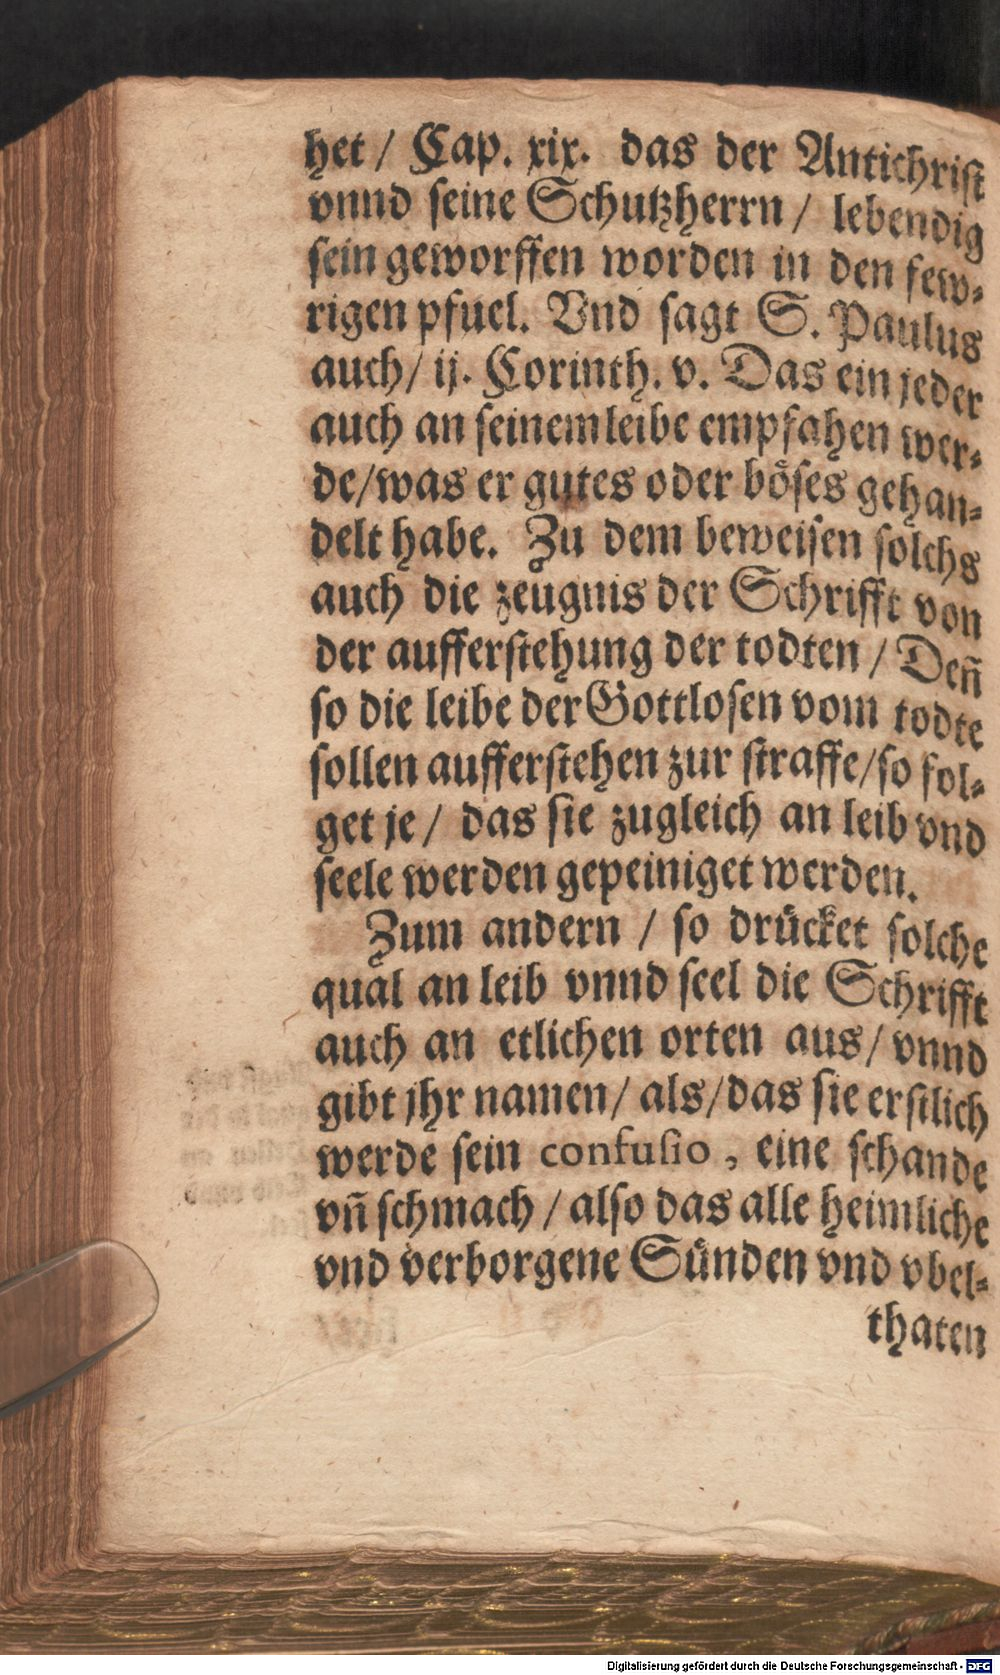 het / Cap. xix. das der Antichrist
vnnd seine Schutzherrn / lebendig
sein geworffen worden in den few⸗
rigen pfuel. Vnd sagt S. Paulus
auch / ij. Corinth. v. Das ein jeder
auch an seinem leibe empfahen wer⸗
de/was er gutes oder böses gehan⸗
delt habe. Zu dem beweisen solchs
auch die zeůgnis der Schrifft von
der aufferstehung der todten / Deñ
so die leibe der Gottlosen vom todte
sollen aufferstehen zur straffe/so fol⸗
get je / das sie zugleich an leib vnd
seele werden gepeiniget werden.
Zum andern / so drücket solche
qual an leib vnnd seel die Schrifft
auch an etlichen orten aus / vnnd
gibt jhr namen / als/das sie erstlich
werde sein confusio, eine schande
vñ schmach / also das alle heimliche
vnd verborgene Sünden vnd vbel⸗
thaten
Digitalisierung gefördert durch die Deutsche Forschungsgemeinschaft - DFG